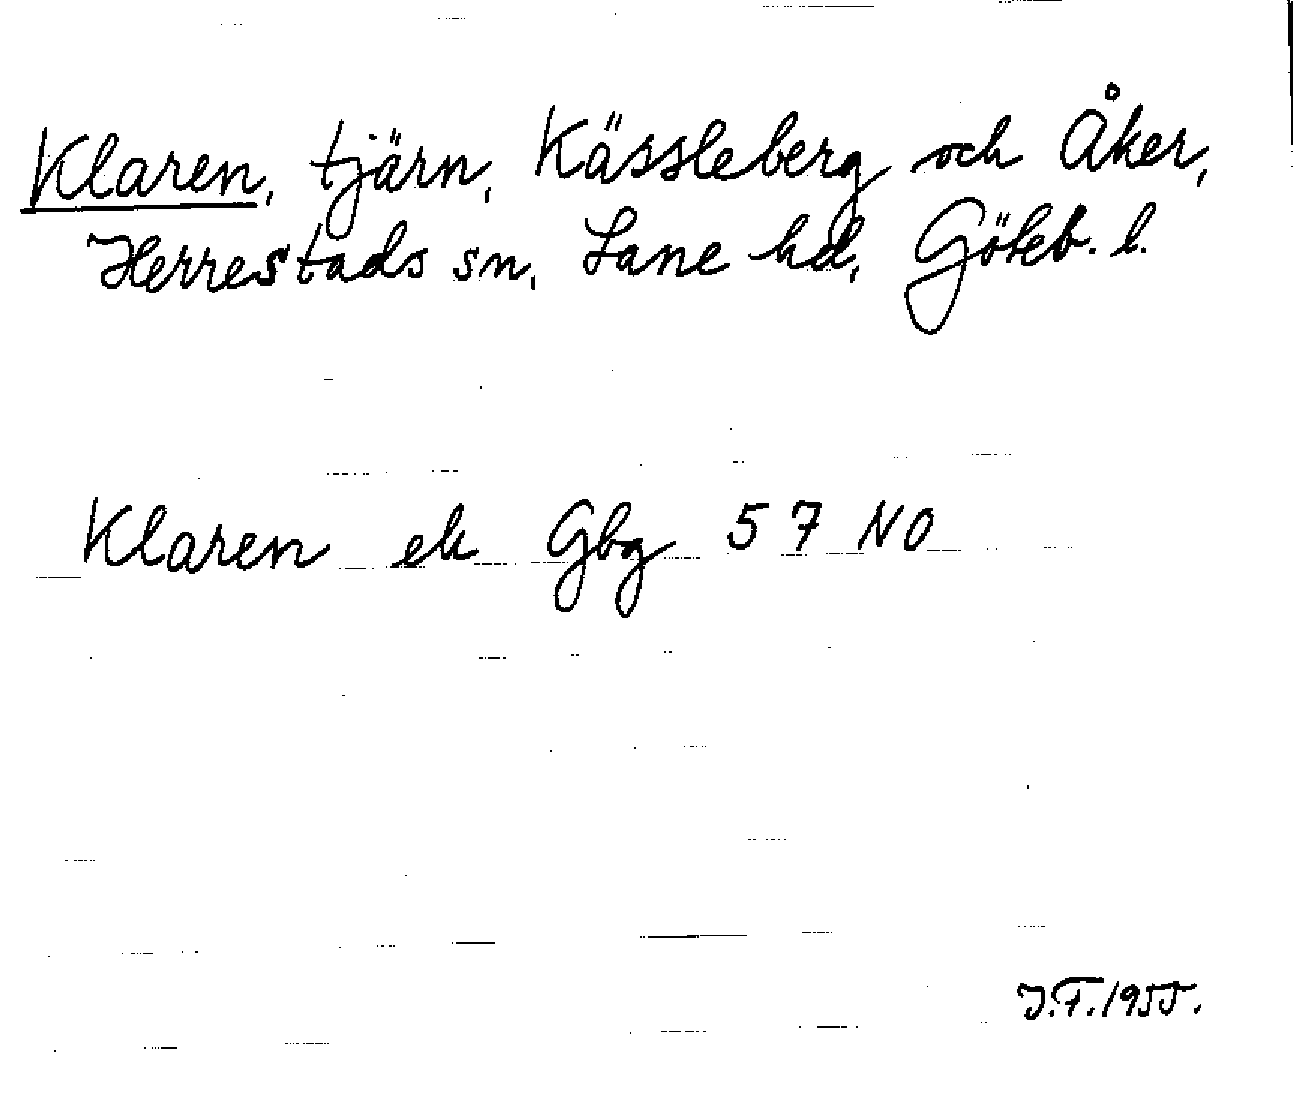 Klaren, tjärn, Kässleberg och Åker,
Herrestads sn, Lane hd, Göteb. l.
Klaren ek Gbg 57 NO
J.F. 1955.